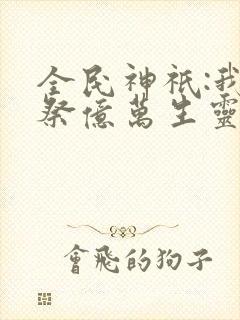 全民神祇:我
祭億萬生靈
會飛的狗子